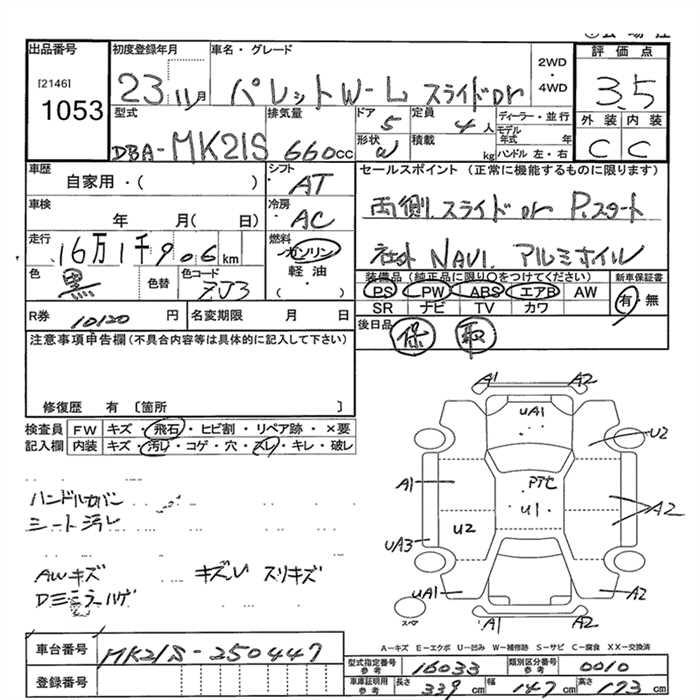 出品番号 初度登録年月 車名・グレード 2WD・4WD 評価点
[2146]
1053 23 11月 パレットW-L スライドDr 3.5
型式 排気量 ドア 定員 ディーラー・並行 外装 内装
DBA-MK21S 660cc 5 4人 モデル年式 年 C C
形状 積載 kg ハンドル 左・右
車歴 シフト セールスポイント (正常に機能するものに限ります)
自家用・( ) AT
車検 冷房 両側スライドDr P.スタート
年 月( 日) AC
走行 燃料 社外 NAVI. アルミホイル
16万1千906km ガソリン
色 色替 色コード 軽油 装備品(純正品に限り○をつけてください) 新車保証書
ZJ3 ・( ) PS PW ABS エアB AW 有・無
SR ナビ TV カワ
R券 10120円 名変期限 月 日 後日品 保 取
注意事項申告欄(不具合内容等は具体的に記入して下さい)
修復歴 有〔箇所 〕
検査員 FW キズ・飛石・ヒビ割・リペア跡・×要
記入欄 内装 キズ・汚レ・コゲ・穴・スレ・キレ・破レ
ハンドルカバン
シート汚レ
AWキズ キズU スリキズ
Dミラーハゲ
A1 A2
UA1
U2
A1 PTセ
U1 A2
U2
UA3
UA1 A2
スペア A1 A2
A-キズ E-エクボ U-凹み W-補修跡 S-サビ C-腐食 XX-交換済
車台番号 MK21S-250447
登録番号
型式指定番号 参考 16033 類別区分番号 参考 0010
車庫証明用 参考 長さ 339cm 幅 147cm 高さ 173cm